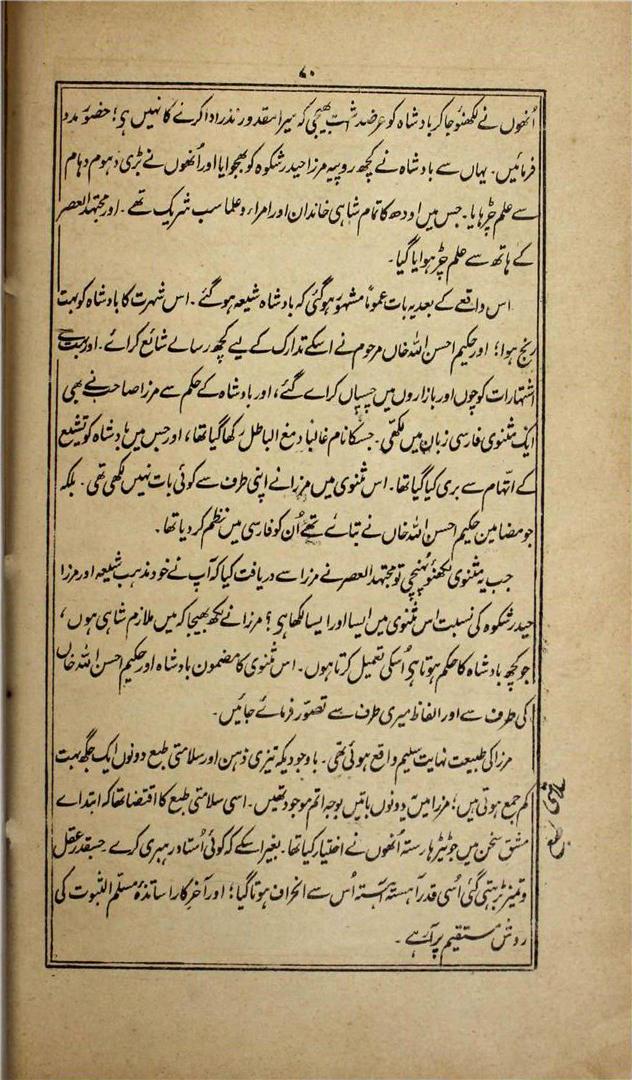 ۷۰
اُنھوں نے لکھنؤ جا کر بادشاہ کو عرضداشت بھیجی کہ میرا مقدور نذر ادا کرنے کا نہیں ہی؛ حضور مدد
فرمائیں۔ یہاں سے بادشاہ نے کچھ روپیہ مرزا حیدر شکوہ کو بھجوایا اور اُنھوں نے بڑی دہوم دہام
سے علم چڑہایا۔ جس میں اودھ کا تمام شاہی خاندان اور امراء و علما سب شریک تھے۔ اور مجتہد العصر
کے ہاتھ سے علم چڑہوایا گیا۔
اس واقعے کے بعد یہ بات عموماً مشہور ہو گئی کہ بادشاہ شیعہ ہو گئے۔ اس شہرت کا بادشاہ کو بہت
رنج ہوا؛ اور حکیم احسن اللہ خاں مرحوم نے اسکے تدارک کے لیے کچھ رسالے شائع کرائے۔ اور بہت سے
اشتہارات کوچوں اور بازاروں میں چسپاں کراے گئے، اور بادشاہ کے حکم سے مرزا صاحب نے بھی
ایک مثنوی فارسی زبان میں لکھی۔ جسکا نام غالباً دمغ الباطل رکھا گیا تھا، اور جس میں بادشاہ کو تشیع
کے اتّہام سے بری کیا گیا تھا۔ اس مثنوی میں مرزا نے اپنی طرف سے کوئی بات نہیں لکھی تھی۔ بلکہ
جو مضامین حکیم احسن اللہ خاں نے بتائے تھے اُن کو فارسی میں نظم کر دیا تھا۔
جب یہ مثنوی لکھنؤ پُہنچی تو مجتہد العصر نے مرزا سے دریافت کیا کہ آپ نے خود مذہب شیعہ اور مرزا
حیدر شکوہ کی نسبت اس مثنوی میں ایسا اور ایسا لکھا ہی؟ مرزا نے لکھ بھیجا کہ میں ملازم شاہی ہوں،
جو کچھ بادشاہ کا حکم ہوتا ہی اُسکی تعمیل کرتا ہوں۔ اس مثنوی کا مضمون بادشاہ اور حکیم احسن اللہ خاں
کی طرف سے اور الفاظ میری طرف سے تصوّر فرمائے جائیں۔
مرزا کی طبیعت نہایت سلیم واقع ہوئی تھی۔ باوجودیکہ تیزی ذہن اور سلامتی طبع دونوں ایک جگہ بہت
کم جمع ہوتی ہیں؛ مرزا میں دونوں باتیں بوجہ اتم موجود تھیں۔ اسی سلامتی طبع کا اقتضا تھا کہ ابتداے
مشق سخن میں جو ٹیڑہا رستہ اُنھوں نے اختیار کیا تھا۔ بغیر اسکے کہ کوئی اُستاد رہبری کرے۔ جسقدر عقل
و تمیز بڑہتی گئی اُسی قدر آہستہ آہستہ اُس سے انحراف ہوتا گیا؛ اور آخر کار اساتذۂ مسلّم الثبوت کی
روش مستقیم پر آ رہے۔